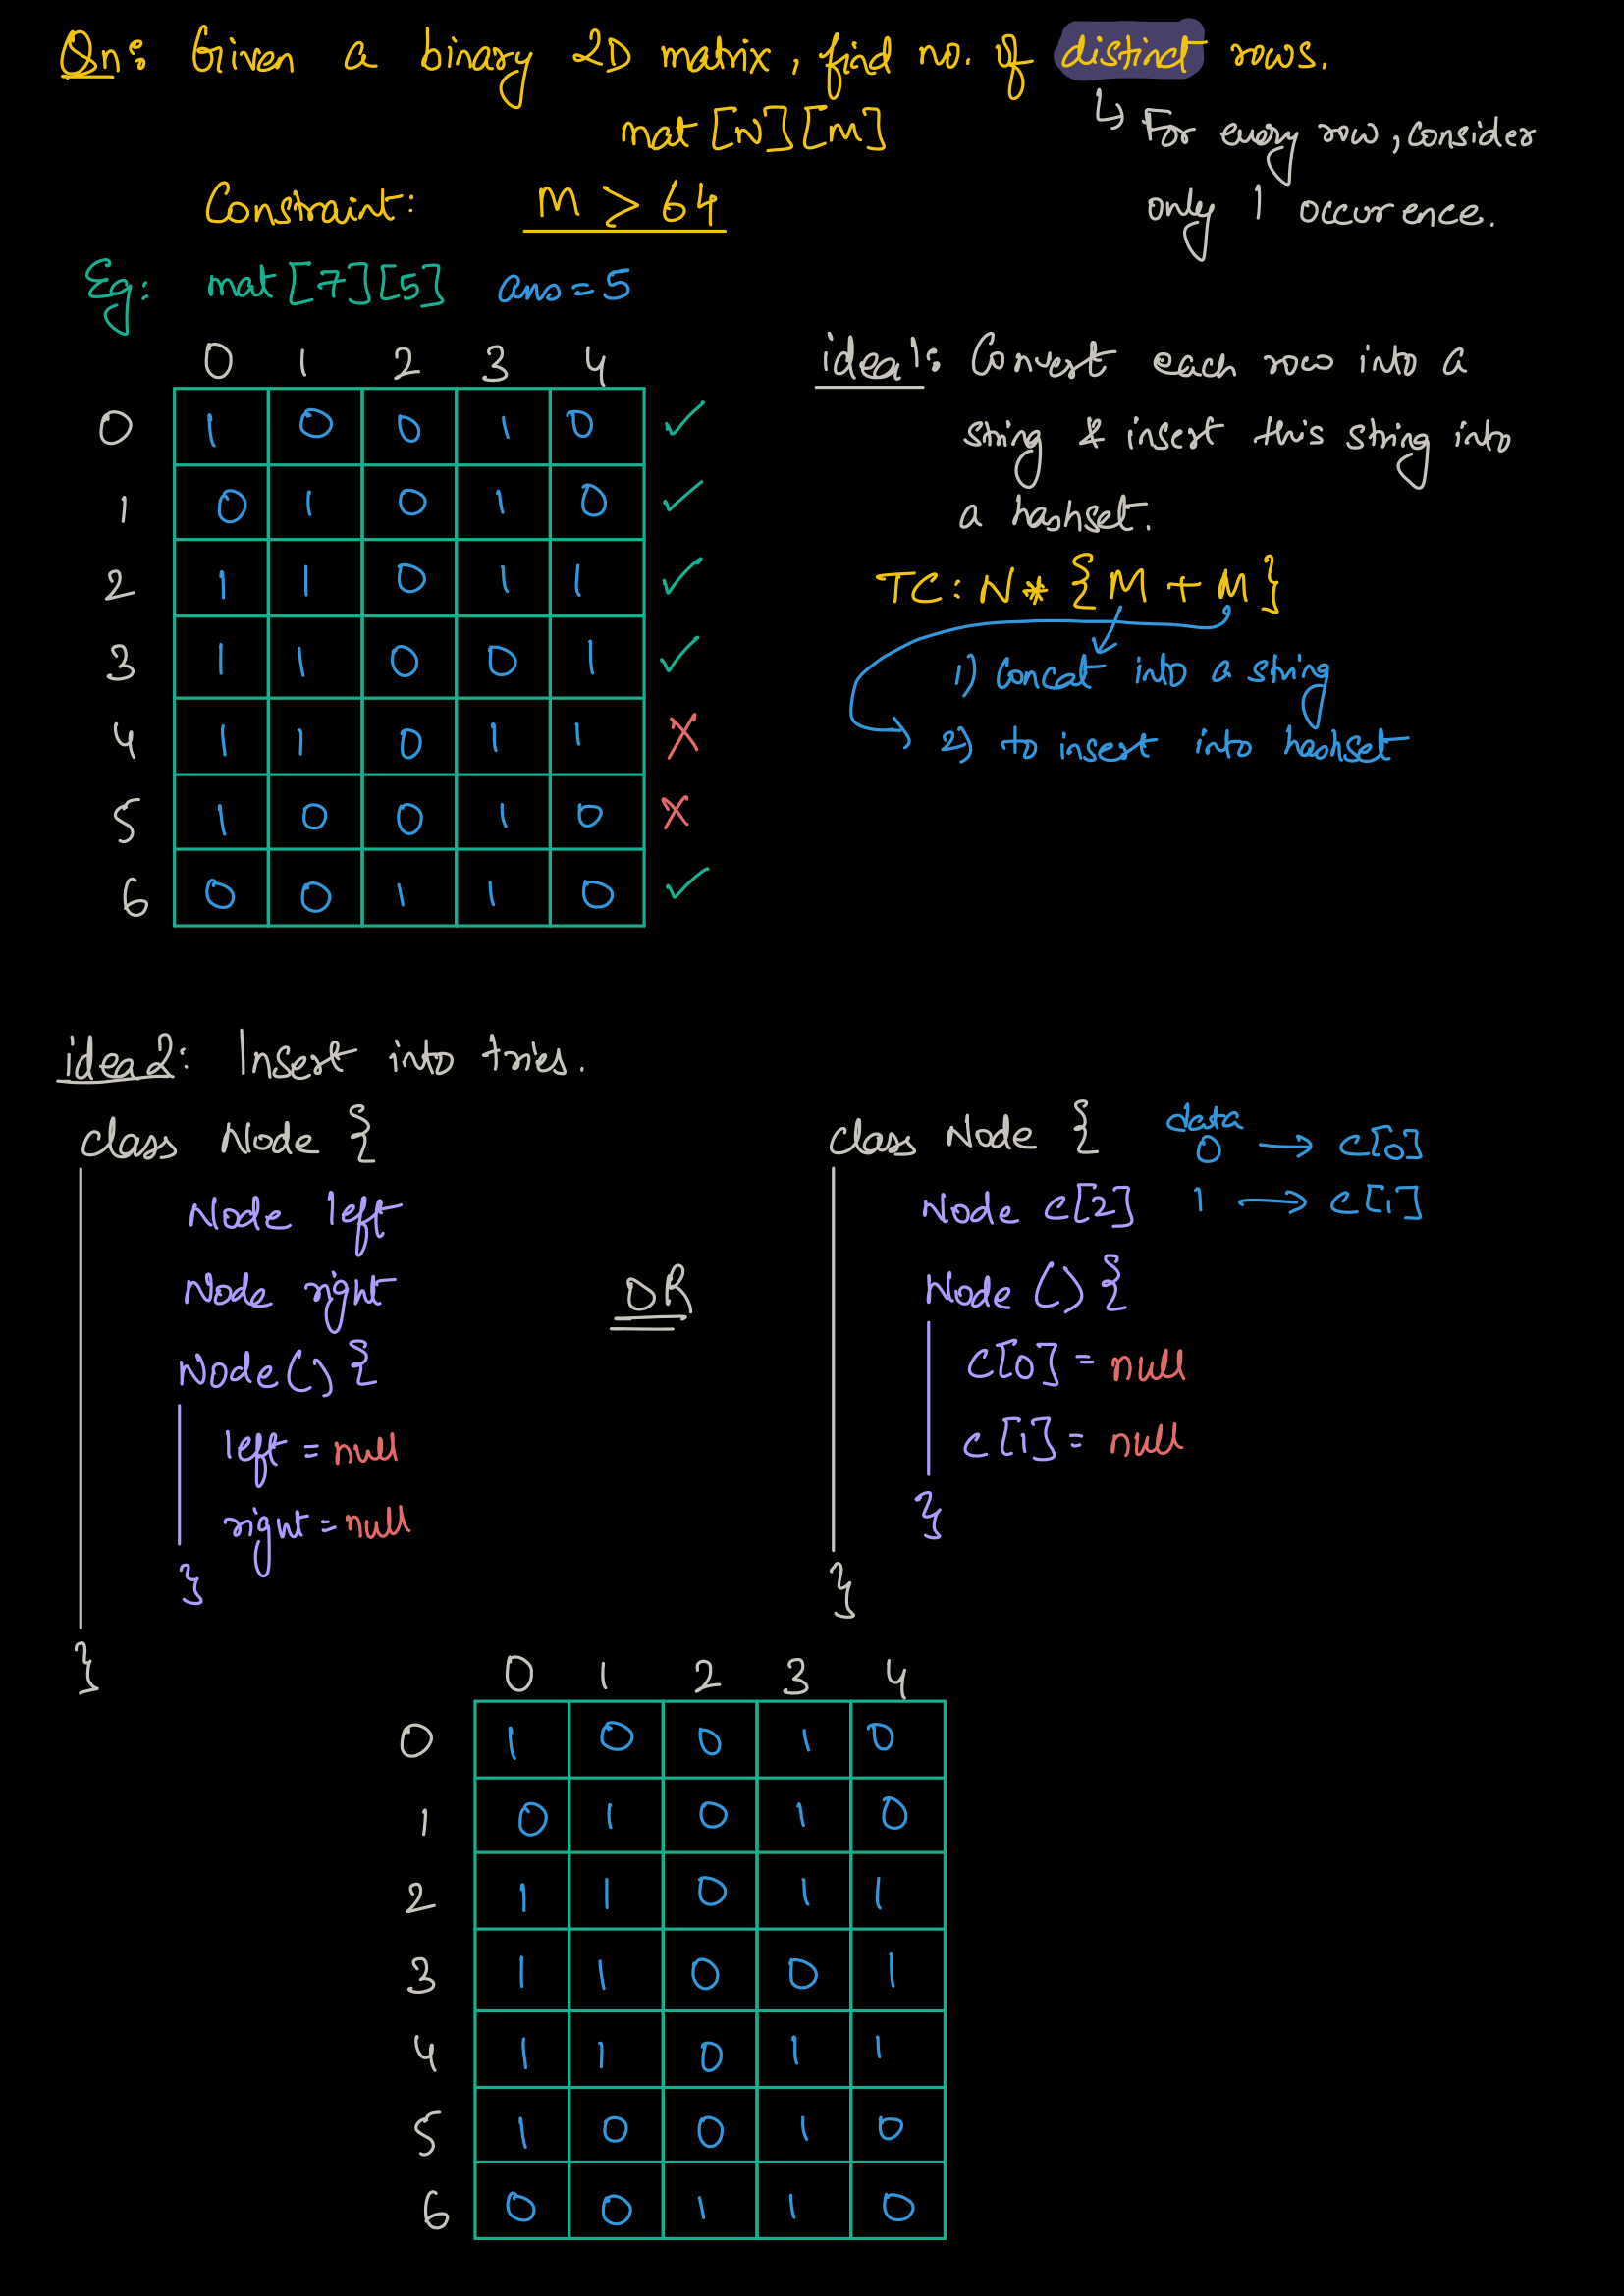 Qn: Given a binary 2D matrix, find no. of distinct rows.
mat [N][M]
↳ For every row, consider
only 1 occurrence.
Constraint: M > 64
Eg: mat [7][5] ans = 5
0 1 2 3 4
0 1 0 0 1 0 ✓
1 0 1 0 1 0 ✓
2 1 1 0 1 1 ✓
3 1 1 0 0 1 ✓
4 1 1 0 1 1 X
5 1 0 0 1 0 X
6 0 0 1 1 0 ✓
idea1: Convert each row into a
string & insert this string into
a hashset.
TC: N * {M + M}
1) Concat into a string
2) to insert into hashset
idea2: Insert into tries.
class Node {
Node left
Node right
Node() {
left = null
right = null
}
}
OR
class Node {
Node c[2]
Node () {
c[0] = null
c[1] = null
}
}
data
0 → c[0]
1 → c[1]
0 1 2 3 4
0 1 0 0 1 0
1 0 1 0 1 0
2 1 1 0 1 1
3 1 1 0 0 1
4 1 1 0 1 1
5 1 0 0 1 0
6 0 0 1 1 0